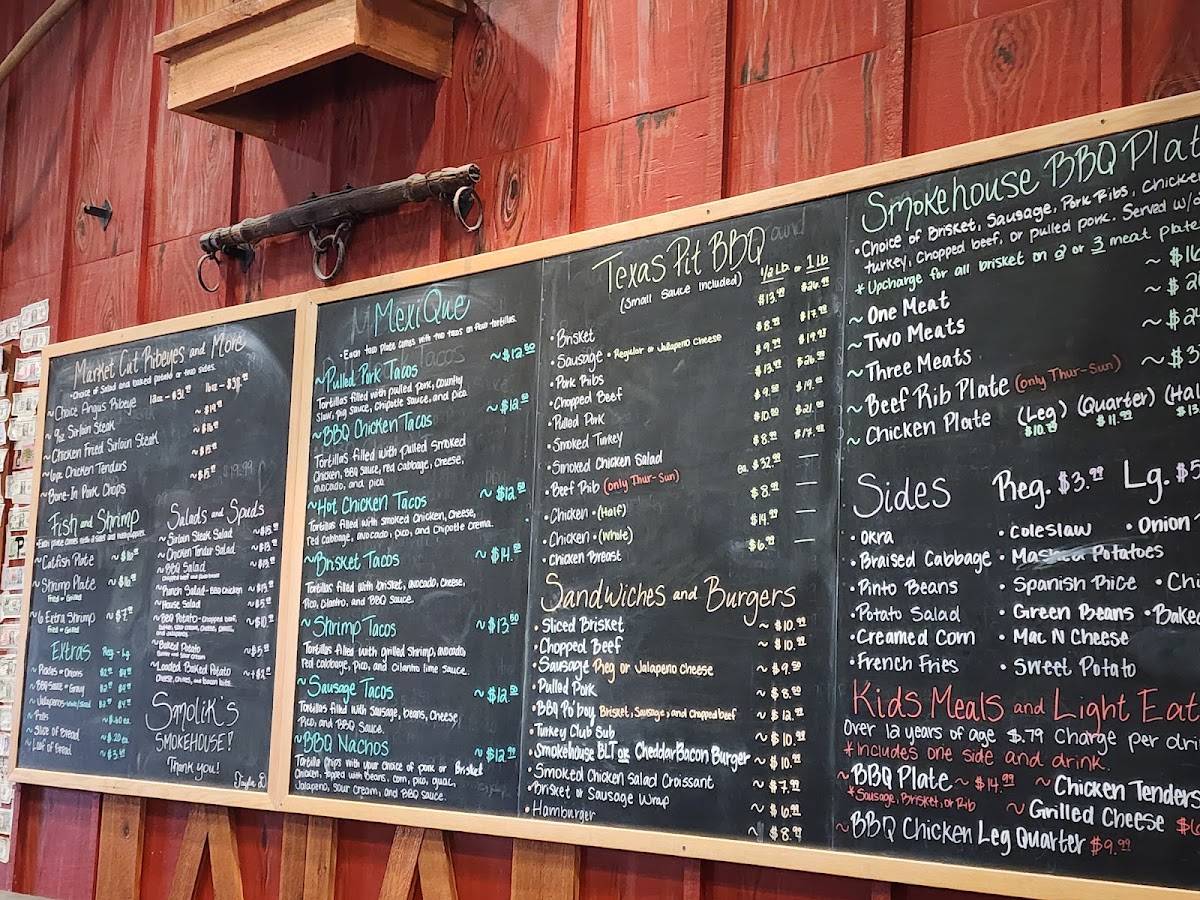 Market Cut Ribeyes and More
• Choice of Salad and baked potato or two sides.
~ Choice Angus Ribeye
~ 9oz Sirloin Steak
~ Chicken Fried Sirloin Steak
~ 6pc Chicken Tenders
~ Bone-In Pork Chops
Fish and Shrimp
~ Catfish Plate
~ Shrimp Plate
Fried or Grilled
~ 6 Extra Shrimp ~ $7.99
Fried or Grilled
Extras Reg - Lg
~ Pickles or Onions
~ BBQ Sauce or Gravy
~ Jalapenos
~ Rolls
~ Slice of Bread
~ Loaf of Bread
Salads and Spuds
~ Sirloin Steak Salad
~ Chicken Tender Salad
~ BBQ Salad
~ Ranch Salad - BBQ Chicken
~ House Salad
~ BBQ Potato - Chopped beef,
~ Baked Potato
Butter and sour cream
~ Loaded Baked Potato
Cheese, chives, and bacon bits.
Smolik's
SMOKEHOUSE!
Thank you!
MexiQue
• Each taco plate comes with two tacos on flour tortillas.
~ Pulled Pork Tacos ~ $12.50
Tortillas filled with pulled pork, country
slaw, pig sauce, chipotle sauce, and pico.
~ BBQ Chicken Tacos ~ $12.50
Tortillas filled with pulled smoked
chicken, BBQ sauce, red cabbage, cheese,
avocado, and pico.
~ Hot Chicken Tacos ~ $12.50
Tortillas filled with smoked chicken, cheese,
red cabbage, avocado, pico, and chipotle crema.
~ Brisket Tacos ~ $14.50
Tortillas filled with brisket, avocado, cheese,
pico, cilantro, and BBQ sauce.
~ Shrimp Tacos ~ $13.50
Tortillas filled with grilled shrimp, avocado,
red cabbage, pico, and cilantro lime sauce.
~ Sausage Tacos ~ $12.50
Tortillas filled with sausage, beans, cheese,
pico, and BBQ sauce.
~ BBQ Nachos ~ $12.99
Tortilla chips with your choice of pork or Brisket
chicken, topped with beans, corn, pico, guac,
jalapeno, sour cream, and BBQ sauce.
Texas Pit BBQ
(Small Sauce Included) 1/2 Lb. or 1 Lb
• Brisket $13.49 $26.99
• Sausage • Regular or Jalapeno Cheese $8.99 $17.99
• Pork Ribs $9.99 $19.99
• Chopped Beef $13.49 $26.99
• Pulled Pork $9.99 $19.99
• Smoked Turkey $10.99 $21.99
• Smoked Chicken Salad $8.99 $17.99
• Beef Rib (only Thur-Sun) ea. $32.99 —
• Chicken • (Half) $8.99 —
• Chicken • (Whole) $14.99 —
• Chicken Breast $6.99 —
Sandwiches and Burgers
• Sliced Brisket ~ $10.99
• Chopped Beef ~ $10.99
• Sausage Reg or Jalapeno Cheese ~ $9.50
• Pulled Pork ~ $8.50
• BBQ Po'boy Brisket, Sausage, and Chopped beef ~ $12.99
• Turkey Club Sub ~ $10.99
• Smokehouse BLT or Cheddar Bacon Burger ~ $10.99
• Smoked Chicken Salad Croissant ~ $7.99
• Brisket or Sausage Wrap ~ $6.99
• Hamburger ~ $8.99
Smokehouse BBQ Plat
• Choice of Brisket, Sausage, Pork Ribs, Chicken
turkey, chopped beef, or pulled pork. Served w/
* Upcharge for all brisket on 2 or 3 meat plate
~ One Meat ~ $16
~ Two Meats ~ $2
~ Three Meats ~ $24
~ Beef Rib Plate (only Thur-Sun) ~ $3
~ Chicken Plate (Leg) (Quarter) (Ha
$10.99 $11.99
Sides Reg. $3.99 Lg. $5
• Okra
• Braised Cabbage
• Pinto Beans
• Potato Salad
• Creamed Corn
• French Fries
• Coleslaw
• Mashed Potatoes
• Spanish Rice
• Green Beans
• Mac N Cheese
• Sweet Potato
• Onion
• Chi
• Baked
Kids Meals and Light Eat
Over 12 years of age $.79 Charge per dri
* Includes one side and drink.
~ BBQ Plate ~ $14.99
* Sausage, Brisket, or Rib
~ Chicken Tenders
~ Grilled Cheese $6
~ BBQ Chicken Leg Quarter $9.99